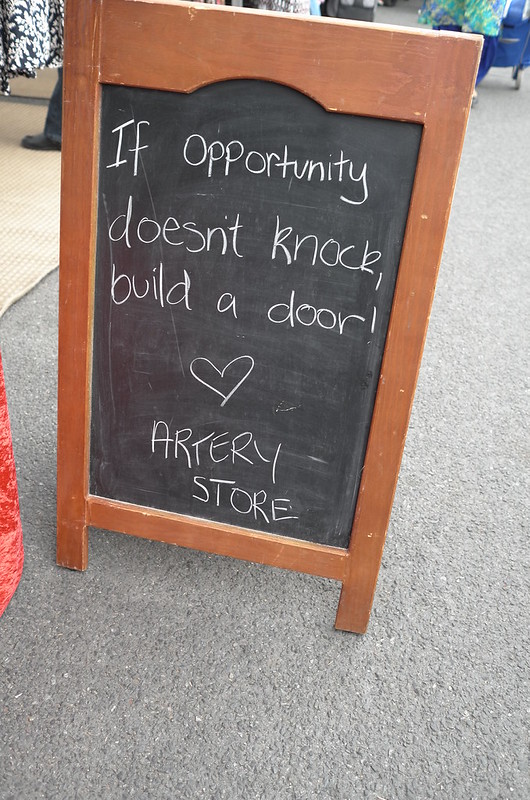 If opportunity
doesn't knock,
build a door!
ARTERY
STORE